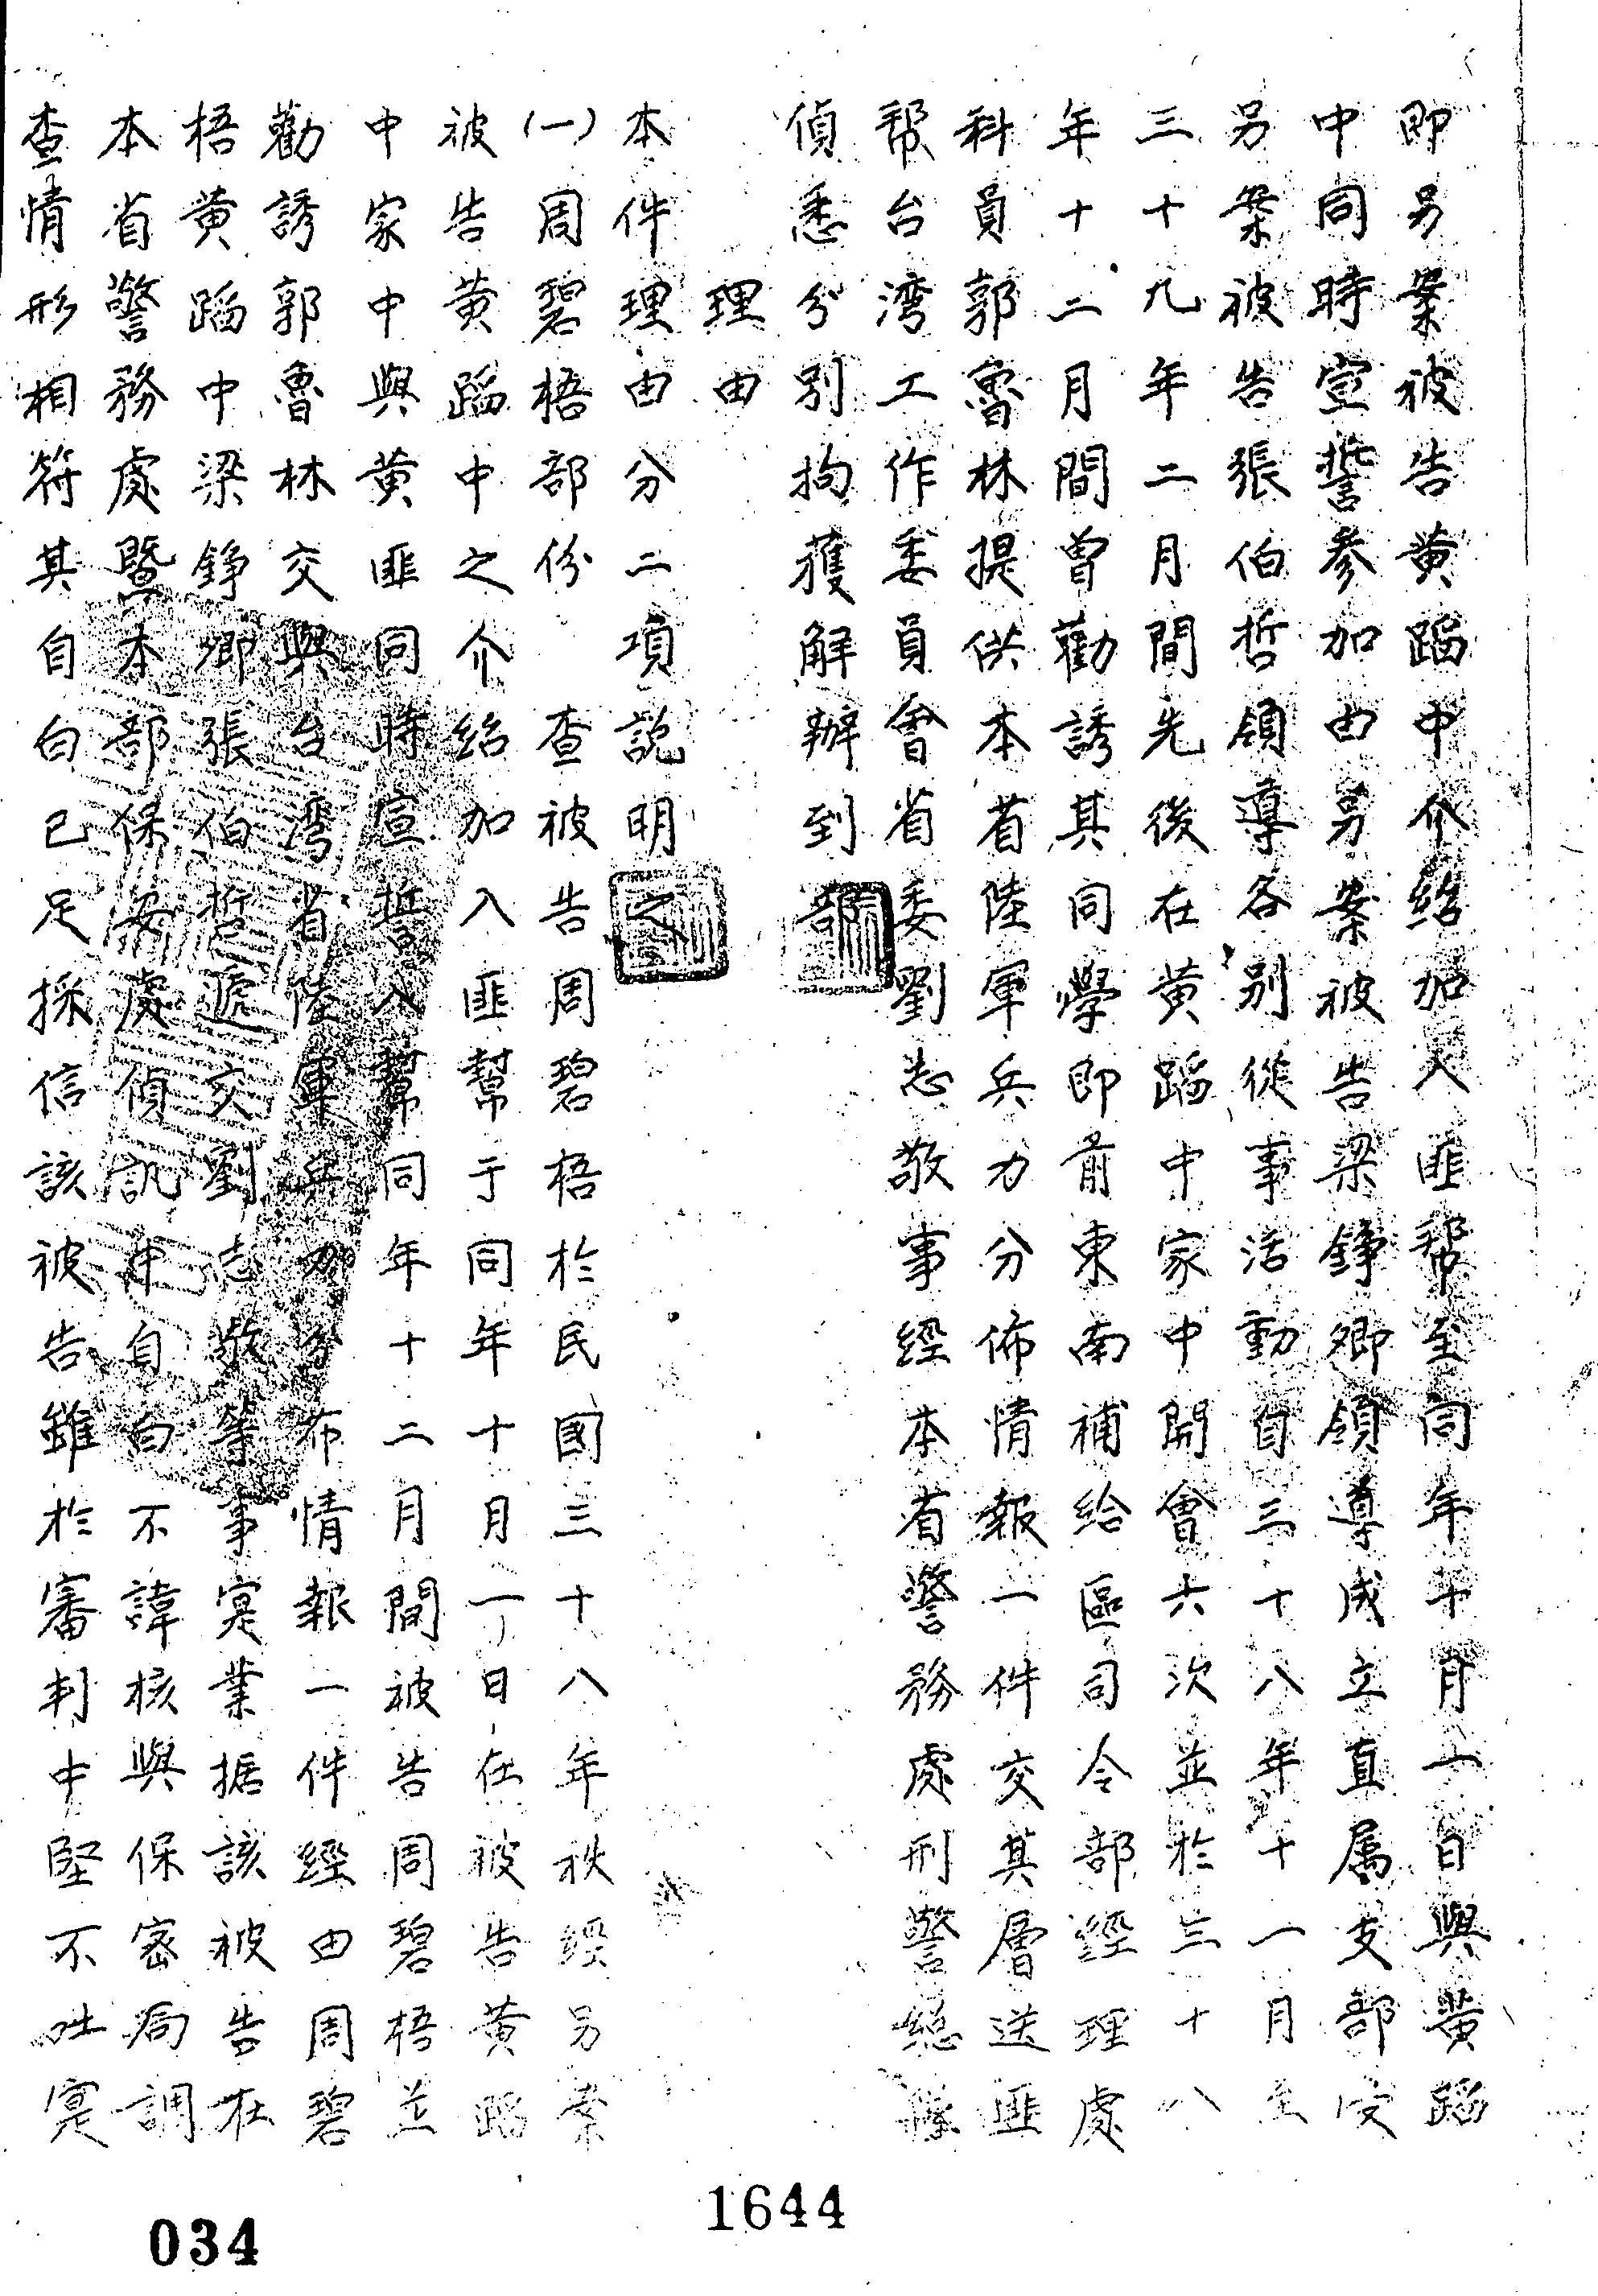 即另案被告黄蹈中介紹加入匪帮至同年十月一日與黄蹈
中同時宣誓參加由另案被告梁錚卿領導成立直属支部受
另案被告張伯哲領導各别從事活動自三十八年十一月至
三十九年二月間先後在黄蹈中家中開會六次並於三十八
年十二月間曾勸誘其同學即前東南補給區司令部經理處
科員郭魯林提供本省陸軍兵力分佈情報一件交其層送匪
帮台湾工作委員會省委劉志敬事經本省警務處刑警總隊
偵悉分别拘獲解辦到部
理由
本件理由分二項説明之
(一)周碧梧部份 查被告周碧梧於民國三十八年秋經另案
被告黄蹈中之介紹加入匪幫于同年十月一日在被告黄蹈
中家中與黄匪同時宣誓入幫同年十二月間被告周碧梧並
勸誘郭魯林交與台灣省陸軍兵力分布情報一件經由周碧
梧黄蹈中梁錚卿張伯哲遞交劉志敬等事寔業据該被告在
本省警務處暨本部保安處偵訊中自白不諱核與保密局調
查情形相符其自白已足採信該被告雖於審判中堅不吐寔
1644
034